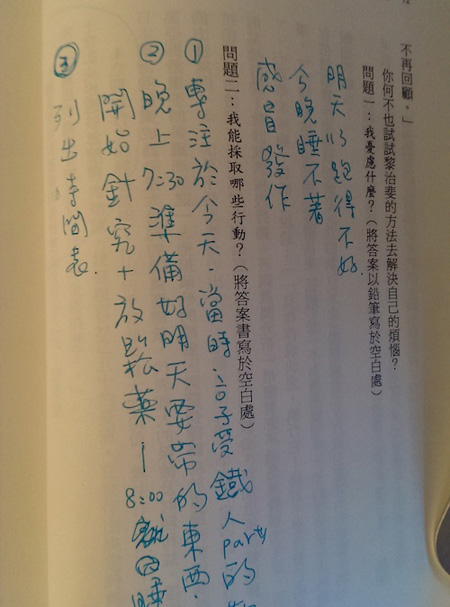 不再回顧。」
你何不也試試黎治斐的方法去解決自己的煩惱？
問題一：我憂慮什麼？（將答案以鉛筆寫於空白處）
明天 跑得不好.
今晚睡不著
感冒發作
問題二：我能採取哪些行動？（將答案書寫於空白處）
① 專注於今天.當時. 受鐵人party的
② 晚上7:30準備好明天要帶的東西.
開始針 + 放鬆藥 8:00 睡
③ 列出時間表.